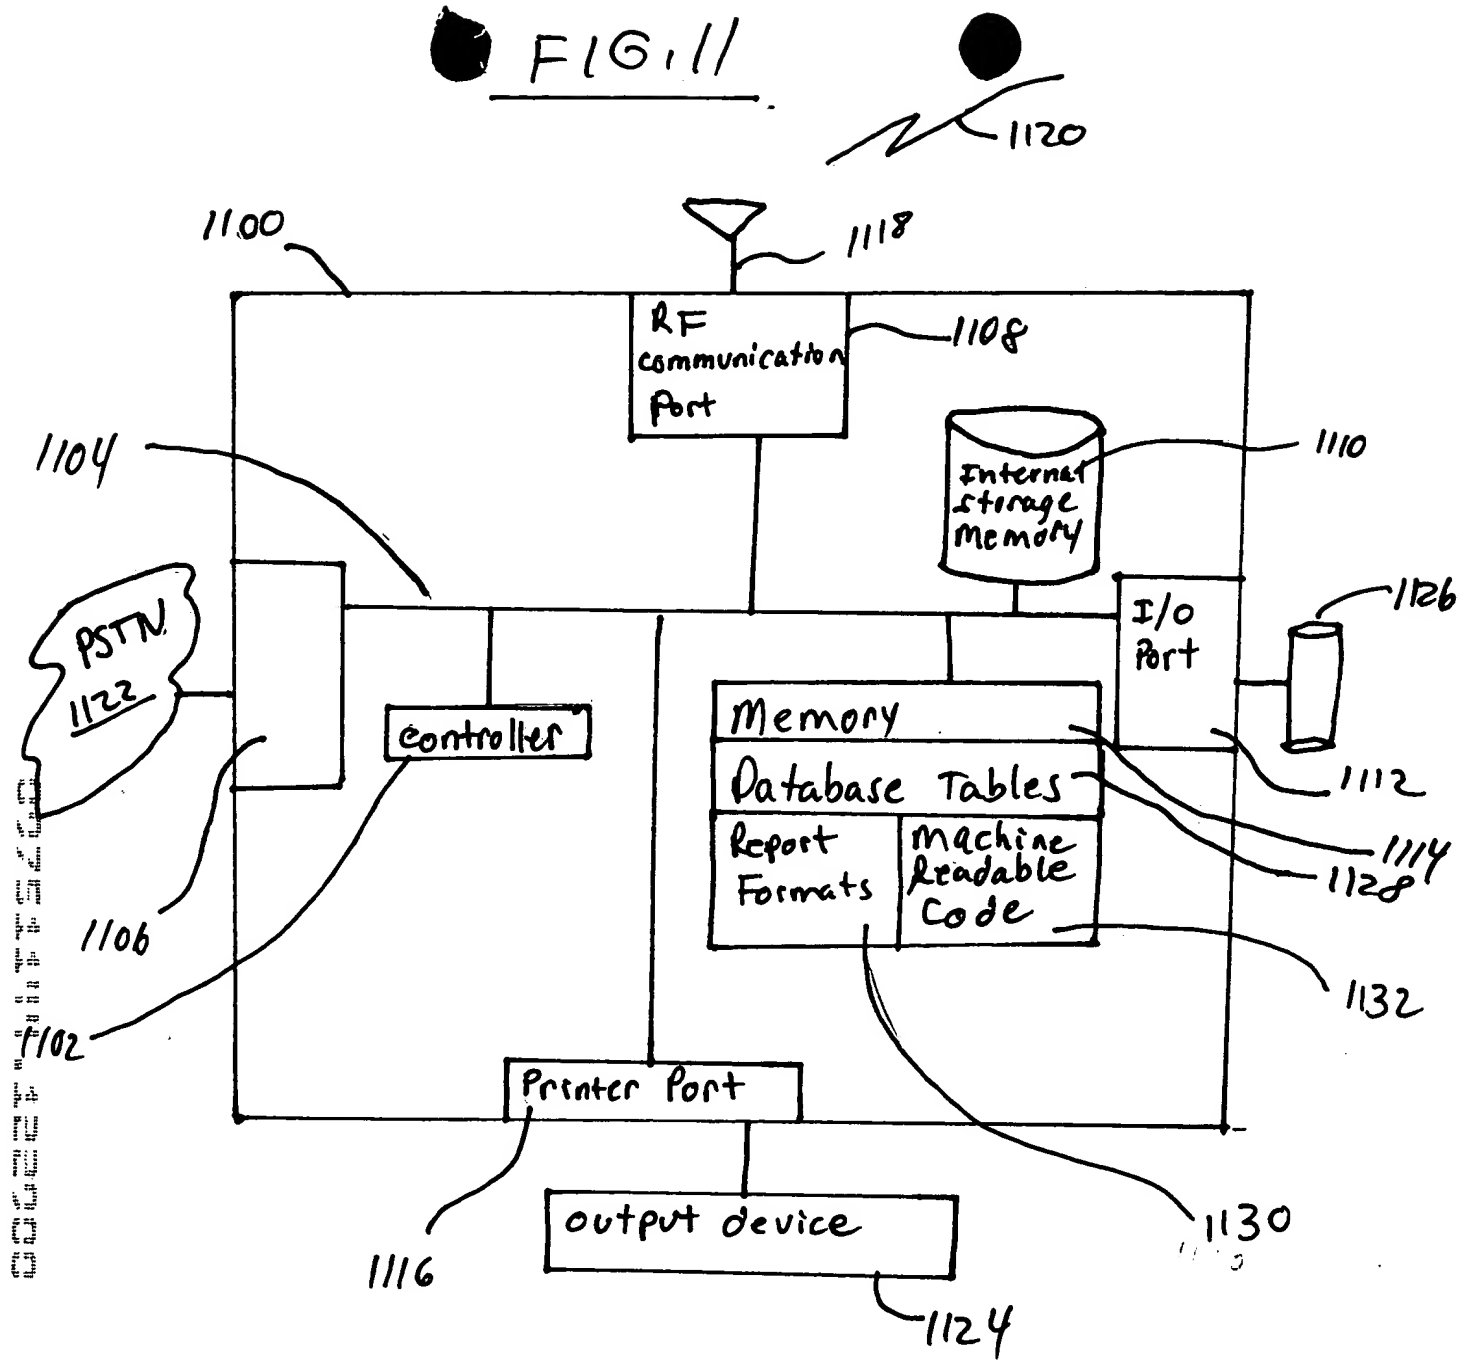 FIG. 11
1120
1100
1118
RF
communication
Port
1108
1104
1110
Internal
storage
Memory
PSTN
1122
I/O
Port
1126
controller
Memory
Database Tables
Report
Formats
Machine
Readable
Code
1112
1114
1128
1106
1102
1132
Printer Port
output device
1116
1130
1124